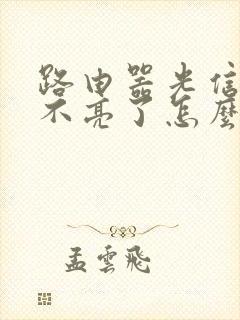 路由器光信
不亮了怎麼
孟雲飛